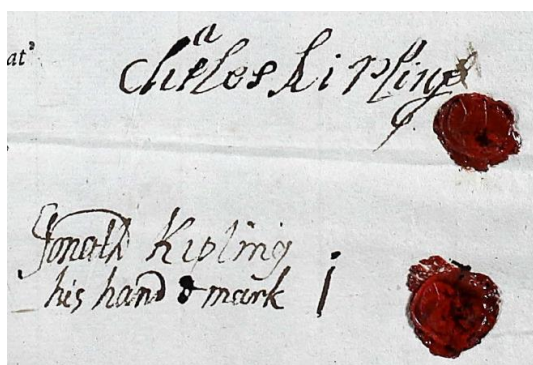 Charles Kipling
Jonath Kipling
his hand & mark